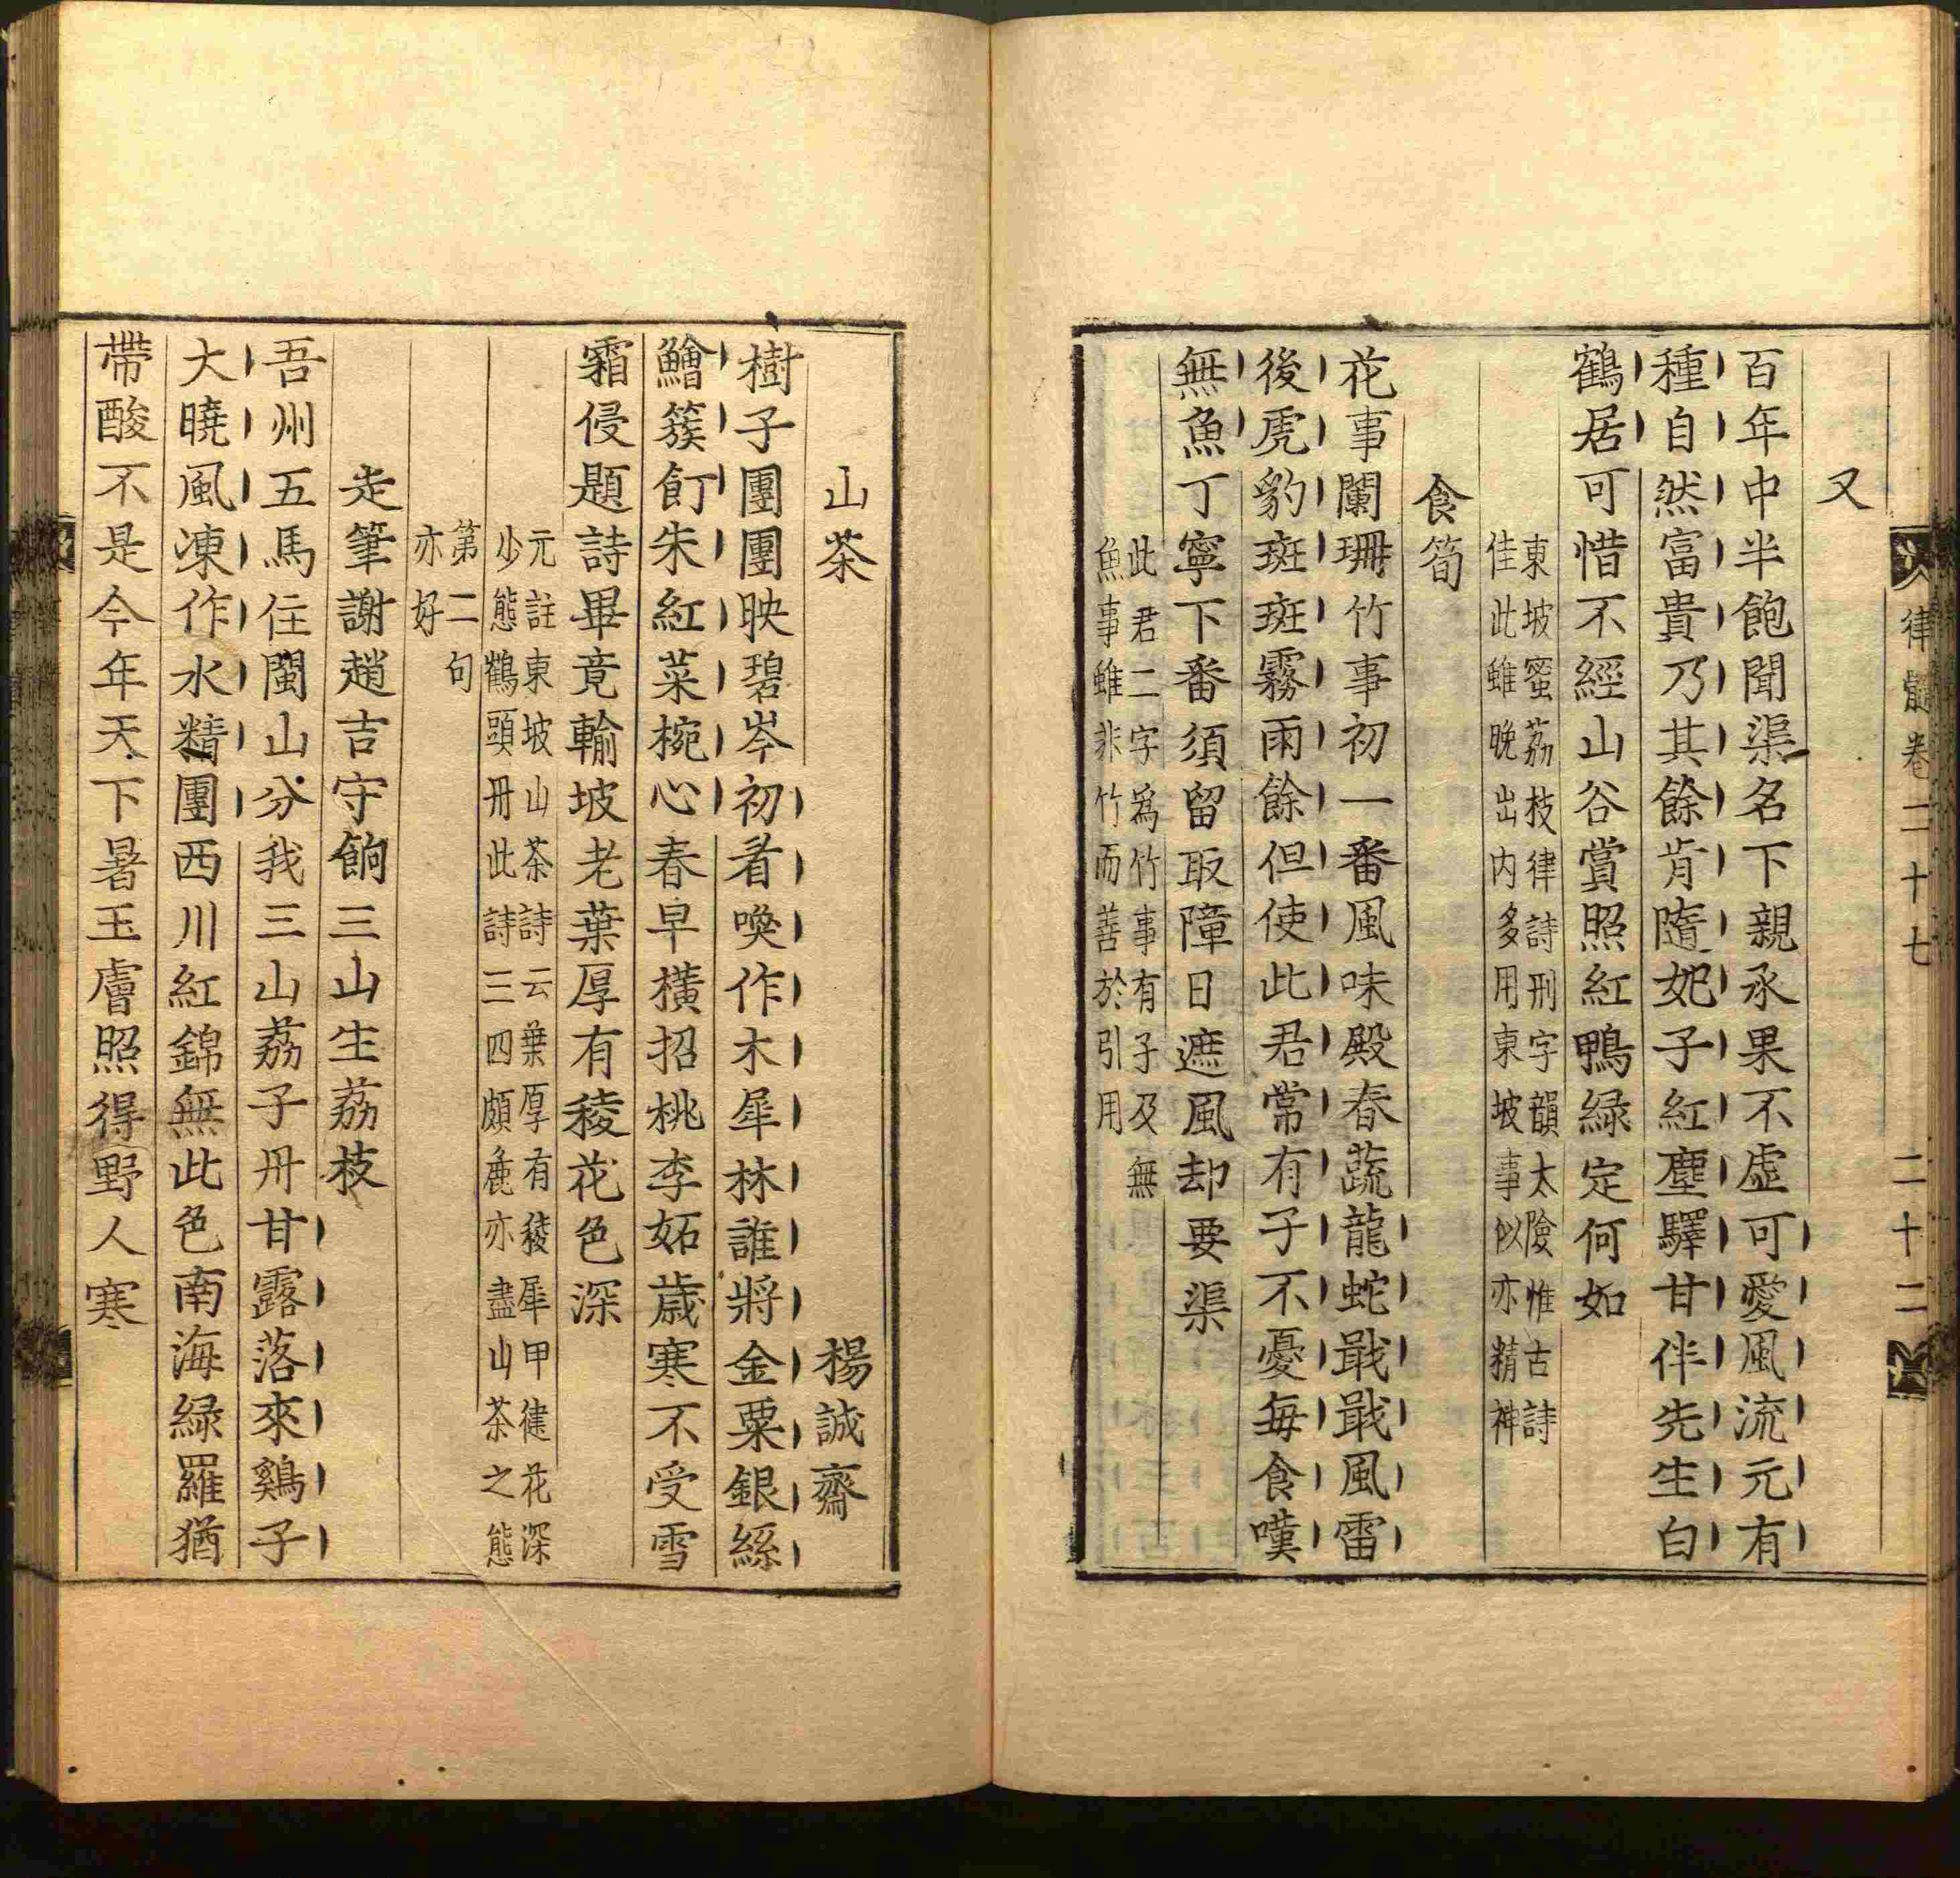 律髓卷二十七　二十二
又
百年中半飽聞渠名下親承果不虛可愛風流元有
種自然富貴乃其餘肯隨妃子紅塵驛甘伴先生白
鶴居可惜不經山谷賞照紅鴨綠定何如
東坡蜜荔枝律詩刑字韻太險惟古詩
佳此雖晚出內多用東坡事似亦精神
食筍
花事闌珊竹事初一番風味殿春蔬龍蛇戢戢風雷
後虎豹斑斑霧雨餘但使此君常有子不憂每食嘆
無魚丁寧下番須留取障日遮風却要渠
此君二字為竹事有子及無
魚事雖非竹而善於引用
山茶　楊誠齋
樹子團團映碧岑初看喚作木犀林誰將金粟銀絲
鱠簇飣朱紅菜椀心春早橫招桃李妬歲寒不受雪
霜侵題詩畢竟輸坡老葉厚有稜花色深
元註東坡山茶詩云葉厚有稜犀甲健花深
少態鶴頭丹此詩三四頗麁亦盡山茶之態
第二句
亦好
走筆謝趙吉守餉三山生荔枝
吾州五馬住閩山分我三山荔子丹甘露落來鷄子
大曉風凍作水精團西川紅錦無此色南海綠羅猶
帶酸不是今年天下暑玉膚照得野人寒